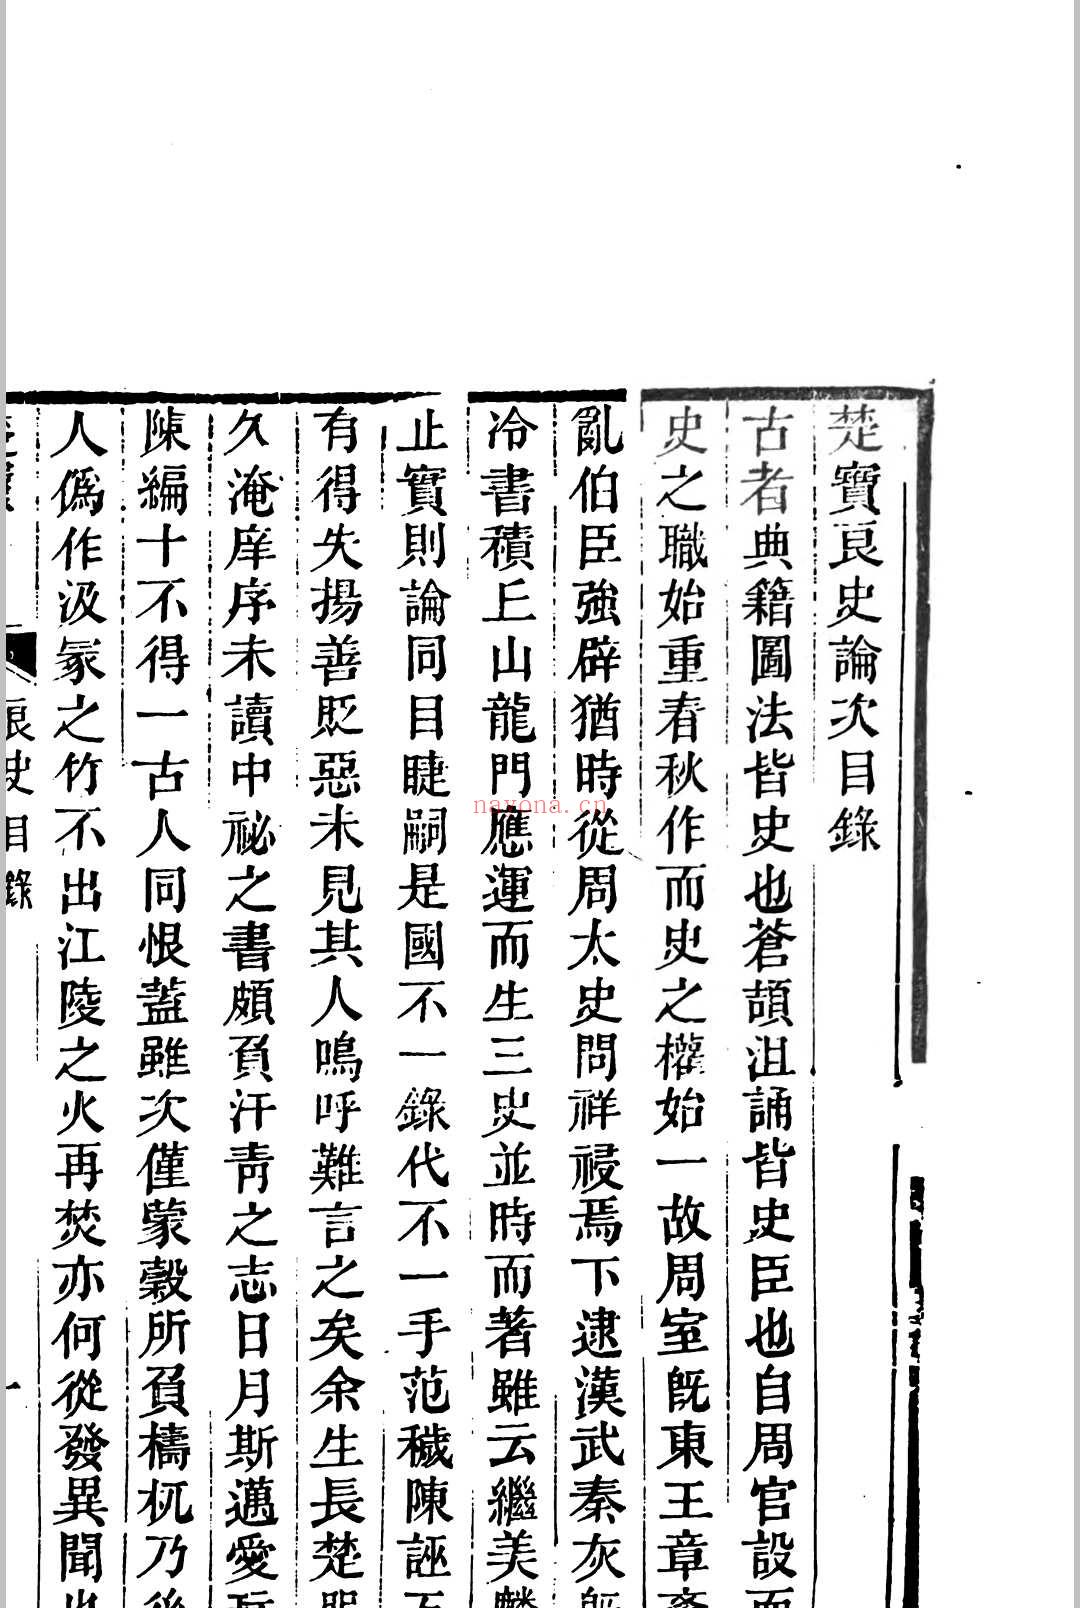 楚寶良史論次目錄
古者典籍圖法皆史也蒼頡沮誦皆史臣也自周官設而
史之職始重春秋作而史之權始一故周室旣東王章
亂伯臣強辟猶時從周太史問祥祲焉下逮漢武秦灰旣
冷書積丘山龍門應運而生三史並時而著雖云繼美麟
止實則論同目睫嗣是國不一錄代不一手范穢陳誣
有得失揚善貶惡未見其人嗚呼難言之矣余生長楚
久淹庠序未讀中祕之書頗負汗靑之志日月斯邁愛
陳編十不得一古人同恨蓋雖次僅蒙穀所負檮杌乃後
人僞作汲冢之竹不出江陵之火再焚亦何從發異聞也
良史目錄
一
nayona.cn